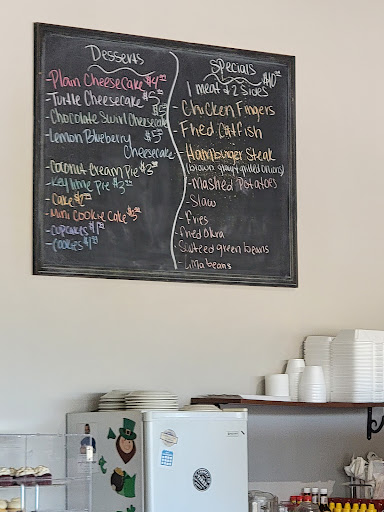 Desserts
- Plain Cheesecake $4
- Turtle Cheesecake $5
- Chocolate Swirl Cheesecake
- Lemon Blueberry $5
Cheesecake
- Coconut Cream Pie $3
- Key lime Pie $3
- Cake
- Mini Cookie Cake $5
- Cupcakes $1
- Cookies $1
Specials
$10
1 meat & 2 sides
- Chicken Fingers
- Fried Catfish
- Hamburger Steak
(brown gravy + grilled onions)
- Mashed Potatoes
- Slaw
- Fries
- Fried Okra
- Sauteed green beans
- Lima beans